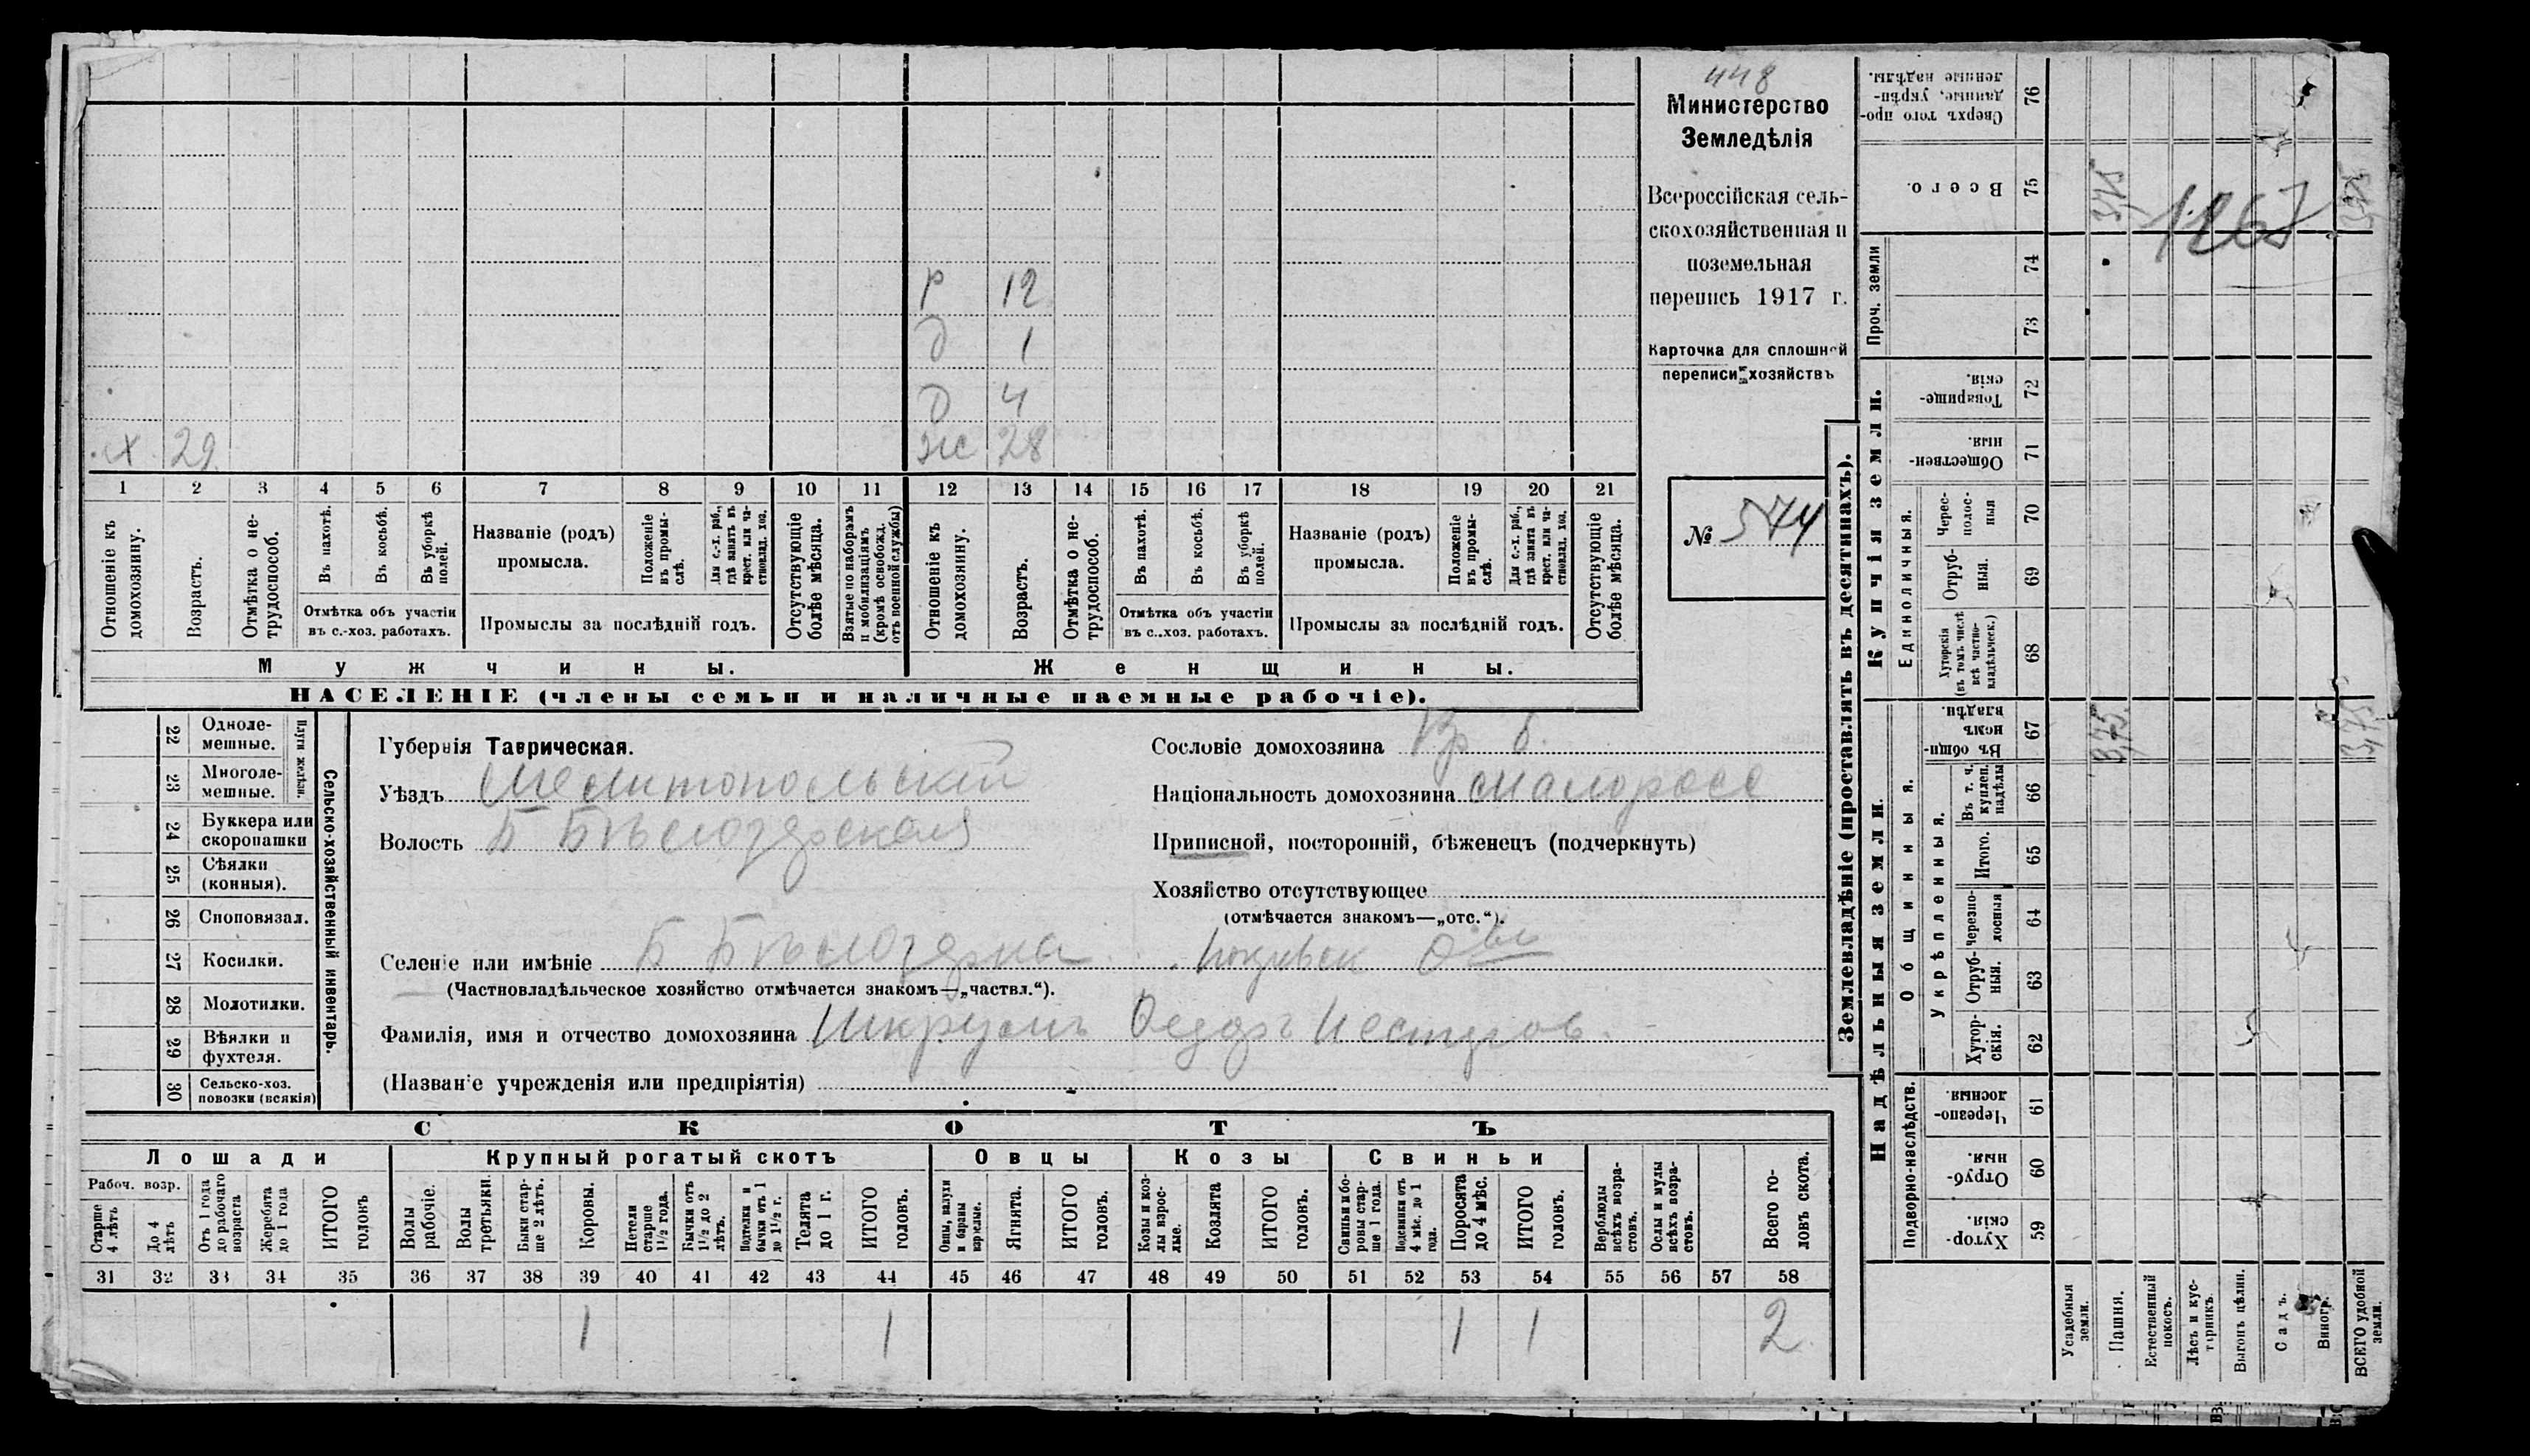 448
Министерство
Земледѣлія
Всероссійская сель-
скохозяйственная и
поземельная
перепись 1917 г.
Карточка для сплошной
переписи хозяйствъ
№ 544
Р 12
д 1
д 4
х 29 ж 28
1 2 3 4 5 6 7 8 9 10 11 12 13 14 15 16 17 18 19 20 21
Отношеніе къ домохозяину.
Возрастъ.
Отмѣтка о не-трудоспособ.
Въ пахотѣ.
Въ косьбѣ.
Въ уборкѣ полей.
Отмѣтка объ участіи
въ с.-хоз. работахъ.
Названіе (родъ)
промысла.
Положеніе въ промы-слѣ.
Для с.-х. раб., гдѣ занятъ въ крест. или ча-стновлад. хоз.
Промыслы за послѣдній годъ.
Отсутствующіе болѣе мѣсяца.
Взятые по наборамъ и мобилизаціямъ (кромѣ освобожд. отъ военной службы)
Отношеніе къ домохозяину.
Возрастъ.
Отмѣтка о не-трудоспособ.
Въ пахотѣ.
Въ косьбѣ.
Въ уборкѣ полей.
Отмѣтка объ участіи
въ с.-хоз. работахъ.
Названіе (родъ)
промысла.
Положеніе въ промы-слѣ.
Для с.-х. раб., гдѣ занятъ въ крест. или ча-стновлад. хоз.
Промыслы за послѣдній годъ.
Отсутствующіе болѣе мѣсяца.
Мужчины. Женщины.
НАСЕЛЕНІЕ (члены семьи и наличные наемные рабочіе).
Сельско-хозяйственный инвентарь.
Плуги желѣзн.
22 Однолемешные.
23 Многолемешные.
24 Буккера или скоропашки
25 Сѣялки (конныя).
26 Сноповязал.
27 Косилки.
28 Молотилки.
29 Вѣялки и фухтеля.
30 Сельско-хоз. повозки (всякія)
Губернія Таврическая.
Уѣздъ Мелитопольскій
Волость Б Бѣлозерская
Селеніе или имѣніе Б Бѣлозерка
(Частновладѣльческое хозяйство отмѣчается знакомъ—„частвл.“).
Фамилія, имя и отчество домохозяина Шкрумъ Федоръ Нестеров.
(Названіе учрежденія или предпріятія)
Сословіе домохозяина Кр
Національность домохозяина малоросс
Приписной, посторонній, бѣженецъ (подчеркнуть)
Хозяйство отсутствующее
(отмѣчается знакомъ—„отс.“).
СКОТЪ
Лошади Крупный рогатый скотъ Овцы Козы Свиньи
Рабоч. возр.
Старше 4 лѣтъ
До 4 лѣтъ
Отъ 1 года до рабочаго возраста
Жеребята до 1 года
ИТОГО головъ
Волы рабочіе.
Волы третьяки.
Быки стар-ше 2 лѣтъ.
Коровы.
Нетели старше 1½ года.
Бычки отъ 1½ до 2 лѣтъ.
Подтелки и бычки отъ 1 до 1½ г.
Телята до 1 г.
ИТОГО головъ.
Овцы, валухи и бараны взрослые.
Ягнята.
ИТОГО головъ.
Козы и коз-лы взрос-лые.
Козлята
ИТОГО головъ.
Свиньи и бо-ровы стар-ше 1 года.
Подсвинки отъ 4 мѣс. до 1 года.
Поросята до 4 мѣс.
ИТОГО головъ.
Верблюды всѣхъ возра-стовъ.
Ослы и мулы всѣхъ возра-стовъ.
Всего го-ловъ скота.
31 32 33 34 35 36 37 38 39 40 41 42 43 44 45 46 47 48 49 50 51 52 53 54 55 56 57 58
1 1 1 1 2
Землевладѣніе (проставлять въ десятинахъ).
Купчія земли.
Надѣльныя земли.
Сверхъ того про-данные, укрѣп-ленные надѣлы. 76
Всего. 75
Проч. земли 74 73
Товарище-скія. 72
Обществен-ныя. 71
Единоличныя.
Черес-полос-ныя 70
Отруб-ныя. 69
Хуторскія (въ томъ числѣ всѣ частно-владѣльческ.) 68
Общинныя.
Въ общин-номъ владѣн. 67
Укрѣпленныя.
Въ т. ч. куплен. надѣлы 66
Итого. 65
Черезпо-лосныя 64
Отруб-ныя. 63
Хутор-скія. 62
Подворно-наслѣдств.
Черезпо-лосныя. 61
Отруб-ныя. 60
Хутор-скія. 59
Усадебныя земли.
Пашня.
Естественный покосъ.
Лѣсъ и кус-тарникъ.
Выгонъ цѣлин.
Садъ.
Виногр.
ВСЕГО удобной земли.
3,75
3,75
1267